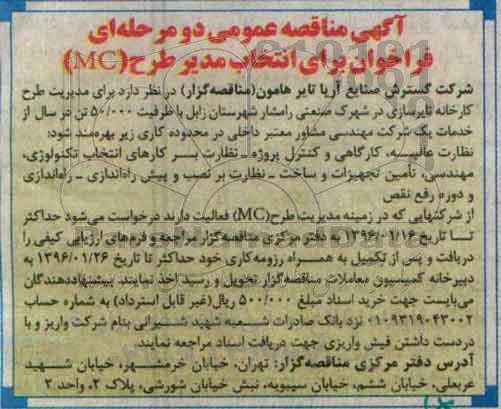 آگهی مناقصه عمومی دو مرحله‌ای
فراخوان برای انتخاب مدیر طرح(MC)
شرکت گسترش صنایع آریا تایر هامون(مناقصه‌گزار) در نظر دارد برای مدیریت طرح
کارخانه تایرسازی در شهرک صنعتی رامشار شهرستان زابل با ظرفیت ۵۰/۰۰۰ تن در سال از
خدمات یک شرکت مهندسی مشاور معتبر داخلی در محدوده کاری زیر بهره‌مند شود:
نظارت عالیــه، کارگاهی و کنترل پروژه ـ نظارت بــر کارهای انتخاب تکنولوژی،
مهندسی، تأمین تجهیزات و ساخت ـ نظارت بر نصب و پیش راه‌اندازی ـ راه‌اندازی
و دوره رفع نقص
از شرکتهایی که در زمینه مدیریت طرح(MC) فعالیت دارند درخواست می‌شود حداکثر
تــا تاریخ ۱۳۹۶/۰۱/۱۶ به دفتر مرکزی مناقصه‌گزار مراجعه و فرم‌های ارزیابی کیفی را
دریافت و پس از تکمیل به همــراه رزومه کاری خود حداکثر تا تاریخ ۱۳۹۶/۰۱/۲۶ به
دبیرخانه کمیسیون معاملات مناقصه‌گزار تحویل و رسید اخذ نمایند. پیشنهاددهندگان
می‌بایست جهت خرید اسناد مبلغ ۵۰۰/۰۰۰ ریال(غیر قابل استرداد) به شماره حساب
۰۱۰۹۳۱۹۰۴۳۰۰۲ نزد بانک صادرات شــعبه شهید شــیرانی بنام شرکت واریز و با
دردست داشتن فیش واریزی جهت دریافت اسناد مراجعه نمایند.
آدرس دفتر مرکزی مناقصه‌گزار: تهران، خیابان خرمشهر، خیابان شــهید
عربعلی، خیابان ششم، خیابان سیبویه، نبش خیابان شورشی، پلاک ۲، واحد ۲